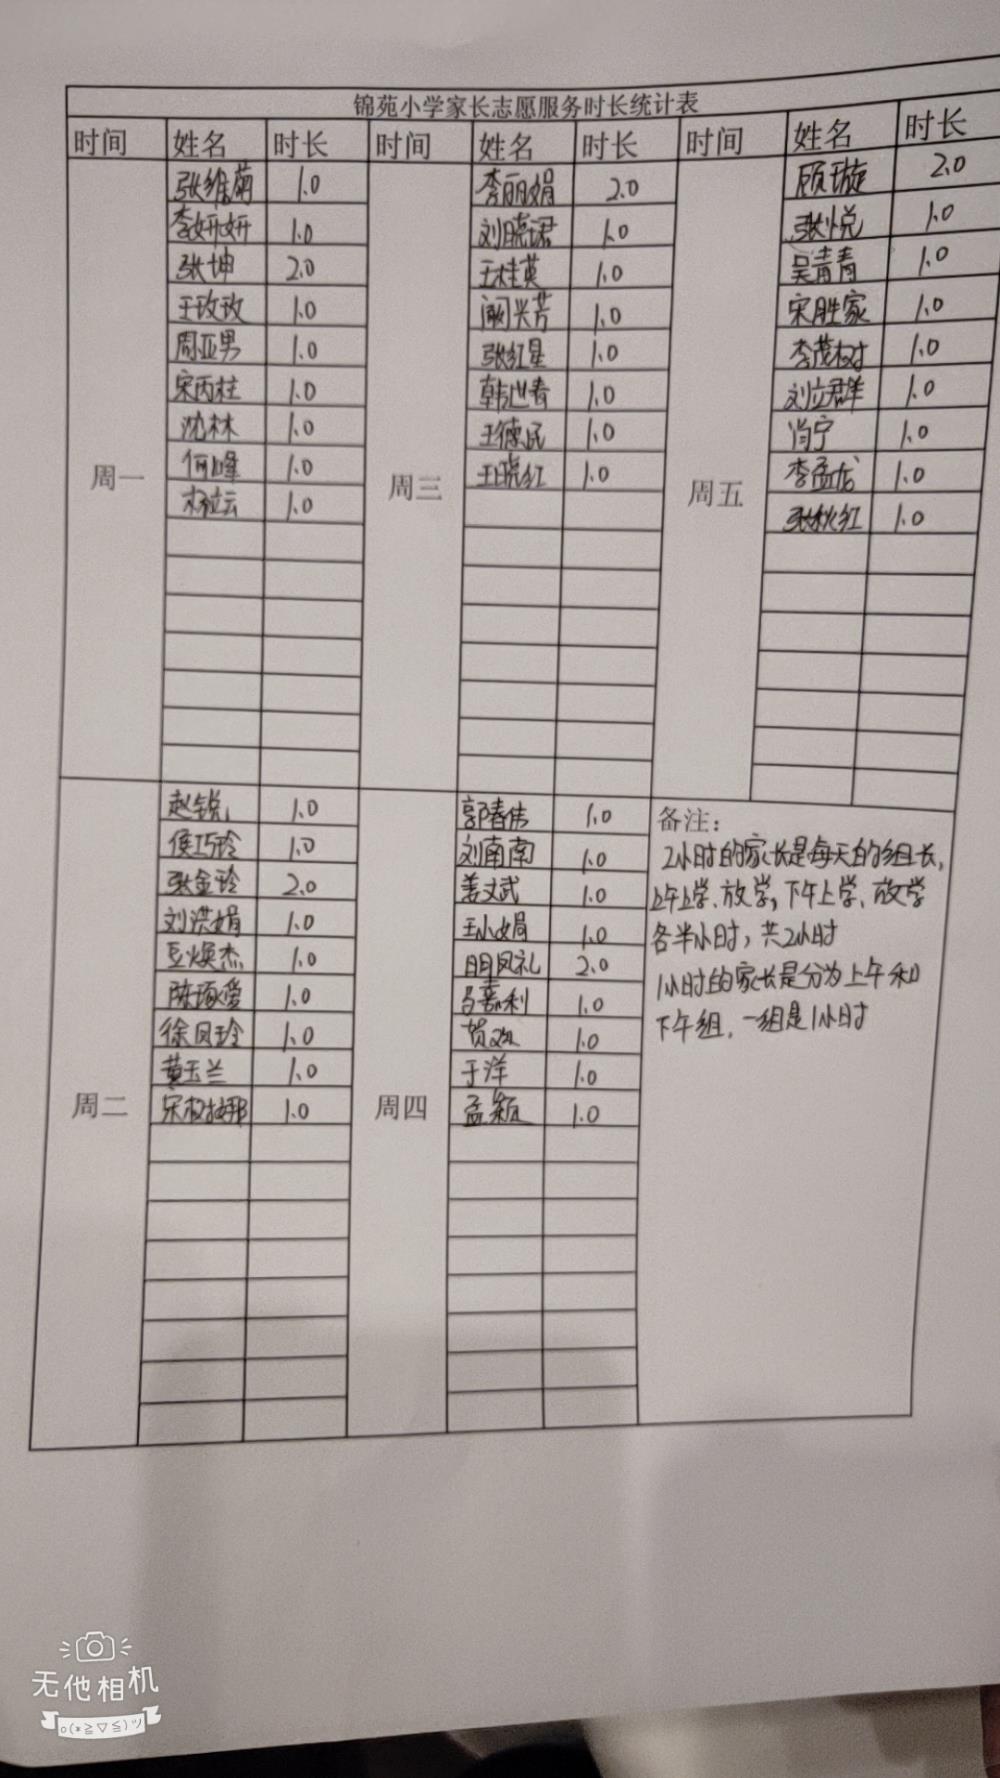 锦苑小学家长志愿服务时长统计表
时间 姓名 时长 时间 姓名 时长 时间 姓名 时长
周一
张维菊 1.0
李妍妍 1.0
张坤 2.0
王玫玫 1.0
周亚男 1.0
宋丙柱 1.0
沈林 1.0
何峰 1.0
1.0
周三
李丽娟 2.0
刘晓珺 1.0
王桂英 1.0
阚兴芳 1.0
张红星 1.0
韩世春 1.0
王德民 1.0
王晓红 1.0
周五
顾璇 2.0
张悦 1.0
吴青青 1.0
宋胜家 1.0
李茂树 1.0
刘立群 1.0
肖宁 1.0
李孟龙 1.0
张秋红 1.0
周二
赵锐 1.0
侯巧玲 1.0
张金玲 2.0
刘洪娟 1.0
豆焕杰 1.0
陈琢爱 1.0
徐凤玲 1.0
黄玉兰 1.0
1.0
周四
郭春伟 1.0
刘南南 1.0
姜文武 1.0
王小娟 1.0
明凤礼 2.0
马嘉利 1.0
贺欢 1.0
于洋 1.0
孟颖 1.0
备注：
2小时的家长是每天的组长，
上午上学、放学，下午上学、放学
各半小时，共2小时
1小时的家长是分为上午和
下午组，一组是1小时
无他相机
o(*≧▽≦)ツ